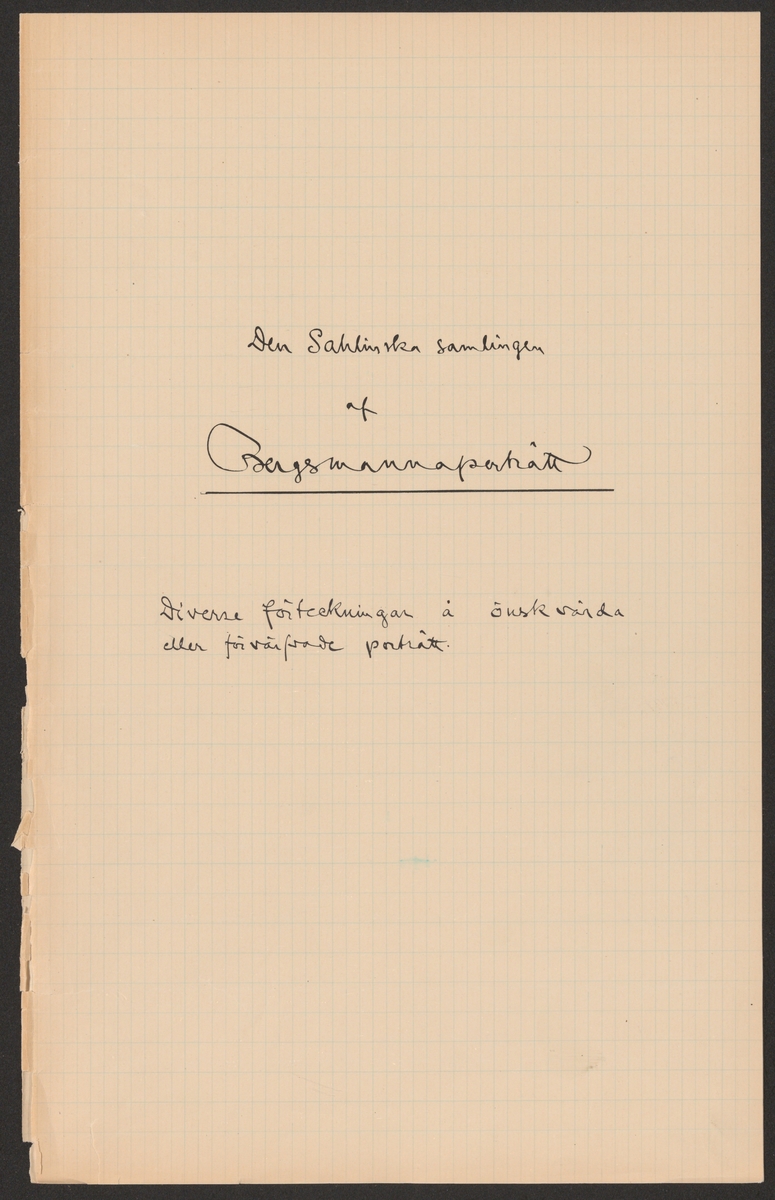 Den Sahlinska samlingen
af
Bergsmannaporträtt
Diverse förteckningar å önskvärda
eller förvärfvade porträtt.